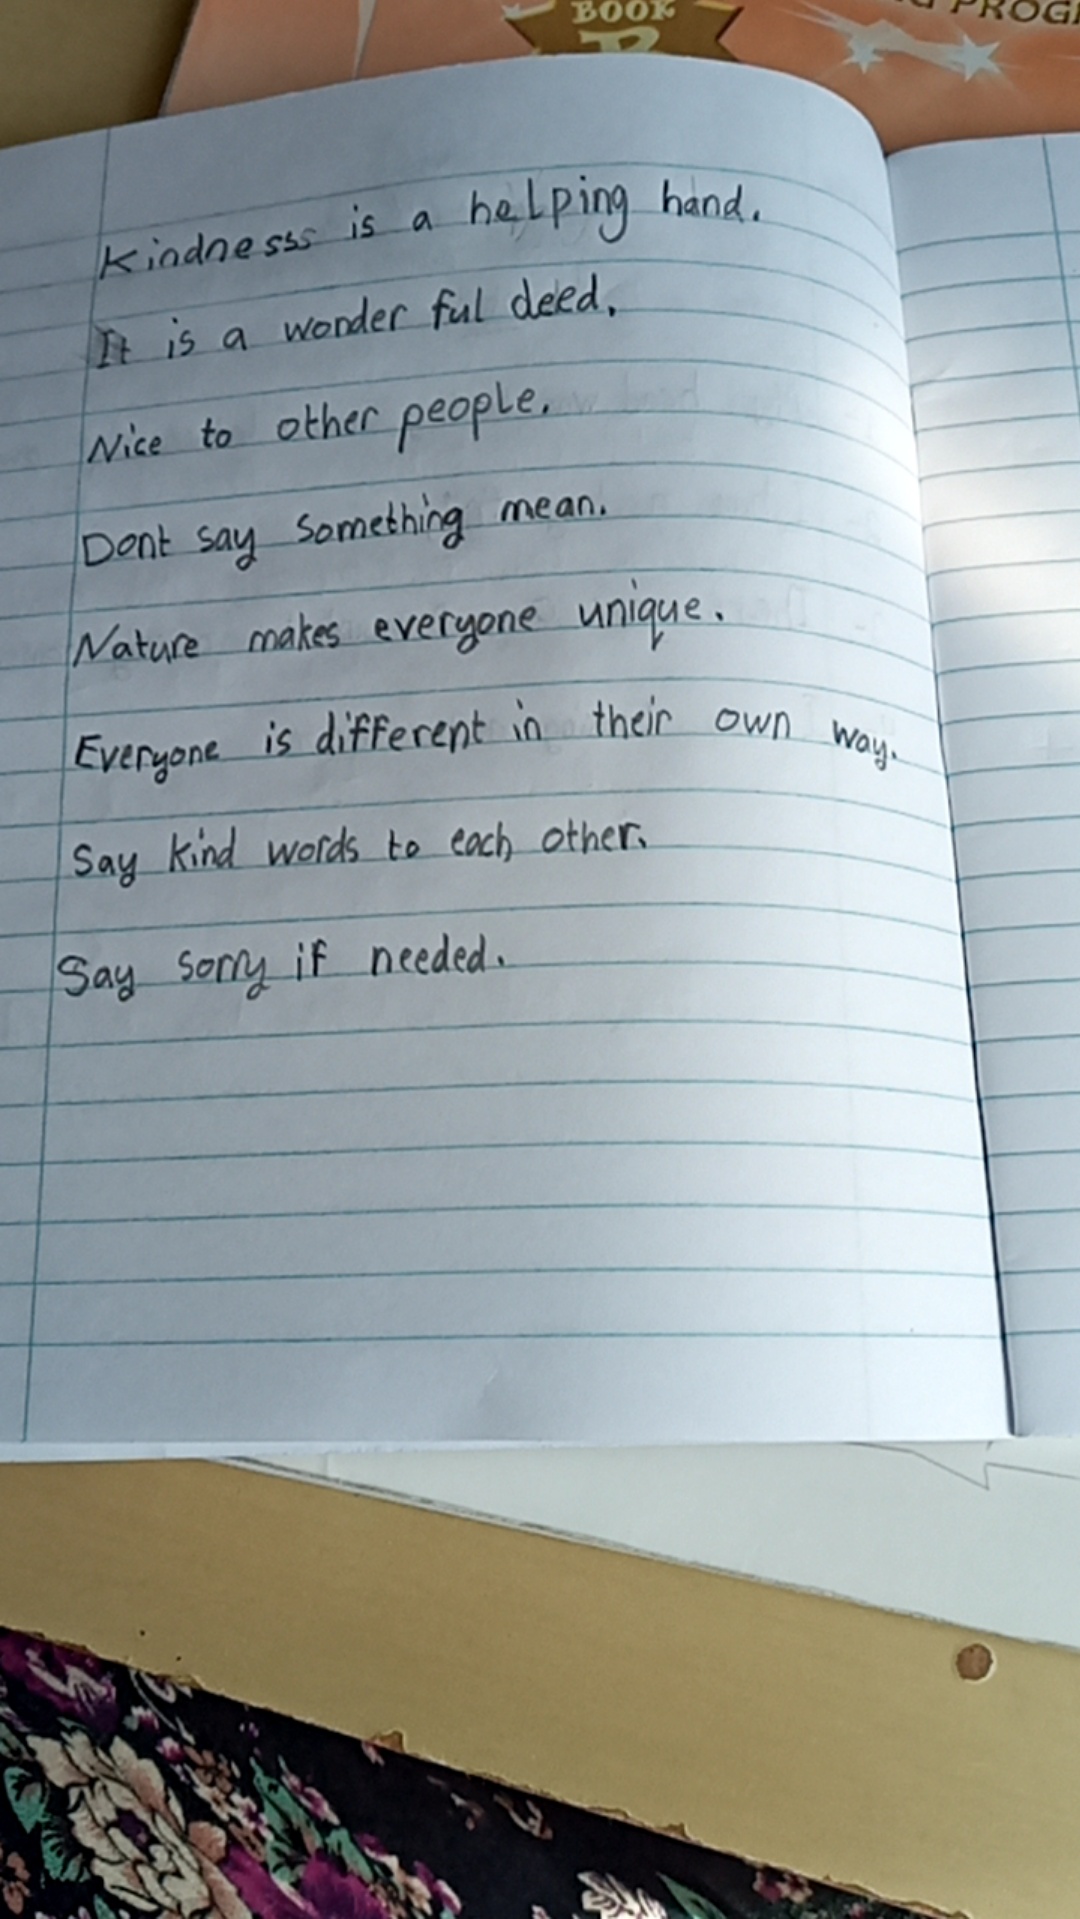 BOOK
B
PROG
Kindnesss is a helping hand.
It is a wonder ful deed.
Nice to other people.
Dont say something mean.
Nature makes everyone unique.
Everyone is different in their own way.
Say kind words to each other.
Say sorry if needed.